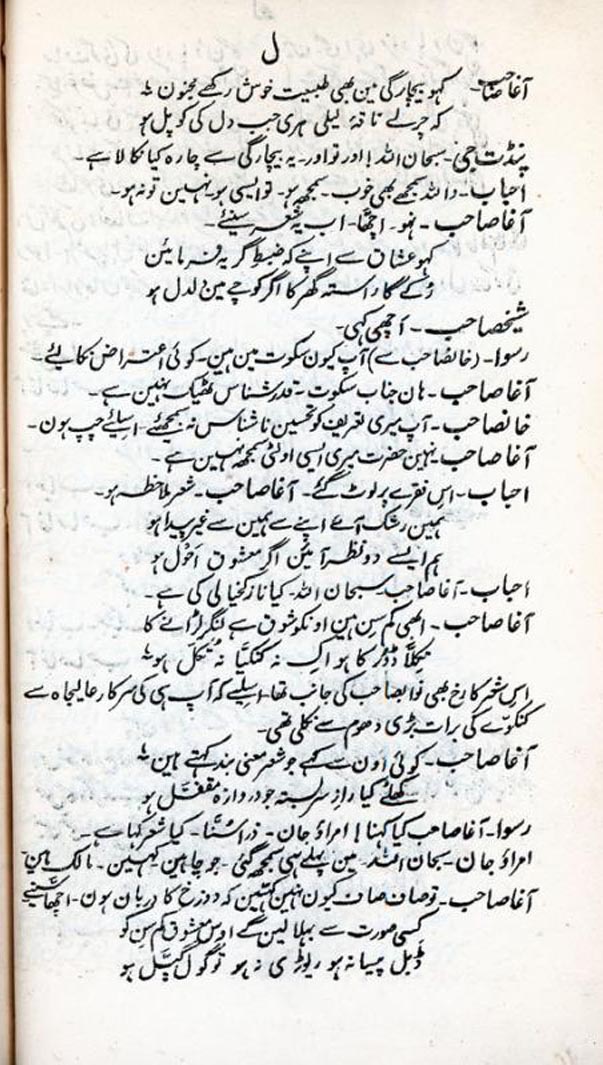 ل
آغا صاحب۔ کہو بیچارگی مین بھی طبیعت خوش رکھے مجنون
کہ چرلے ناقۂ لیلی ہری جب دل کی کوپل ہو
پنڈت جی۔ سبحان اللہ! اور تو اور۔ یہ بیچارگی سے چارہ کیا نکالا ہے۔
احباب۔ واللہ سمجھے بھی خوب۔ سمجھ ہو۔ تو ایسی ہو نہین تو نہ ہو۔
آغا صاحب۔ نہو۔ اچھا۔ اب یہ شعر سنیے۔
کہو عشاق سے اپنے کہ ضبطِ گریہ فرمائین
رکے گا راستہ گھر کا اگر کوچے مین دلدل ہو
شیخصاحب۔ اچھی کہی۔
رسوا۔ (خانصاحب سے) آپ کیون سکوت مین ہین۔ کوئی اعتراض نکالیے۔
آغا صاحب۔ ہان جناب سکوت۔ قدر شناس ٹھیک نہین ہے۔
خانصاحب۔ آپ میری تعریف کو تحسین ناشناس نہ سمجھئے۔ اسلیے چپ ہون۔
آغا صاحب۔ نہین حضرت میری ایسی اولٹی سمجھ نہین ہے۔
احباب۔ اس فقرے پر لوٹ گئے۔ آغا صاحب۔ شعر ملاحظہ ہو۔
ہمین رشک آئے اپنے سے ہمین سے غیر پیدا ہو
ہم ایسے دو نظر آئین اگر معشوق احول ہو
احباب۔ آغا صاحب سبحان اللہ۔ کیا نازکخیالی کی ہے۔
آغا صاحب۔ ابھی کم سن ہین اونکو شوق ہے لنگر لڑانے کا
نکلا ڈور کا ہو اک نہ کنکیا نہ تکل ہو
اس شعر کا رخ بھی نوابصاحب کی جانب تھا۔ اسلیے کہ آپ ہی کی سرکار عالیجاہ سے
کنکوّے کی برات بڑی دھوم سے نکلی تھی۔
آغا صاحب۔ کوئی اون سے کہے جو شعر معنی بند کہتے ہین
کھلے کیا راز سربستہ جو دروازہ مقفل ہو
رسوا۔ آغا صاحب کیا کہنا! امراؤ جان۔ ذرا سُننا۔ کیا شعر کہا ہے۔
امراؤ جان۔ سبحان اللہ۔ مین پہلے ہی سمجھ گئی۔ جو چاہین کہین۔ مالک ہین
آغا صاحب۔ تو صاف صاف کیون نہین کہتین کہ دوزخ کا دربان ہون۔ اچھا سنیے
کسی صورت سے بہلا لین گے اوس معشوق کم سن کو
ڈبل پیسا نہ ہو ریوڑی نہ ہو تو گول گپل ہو